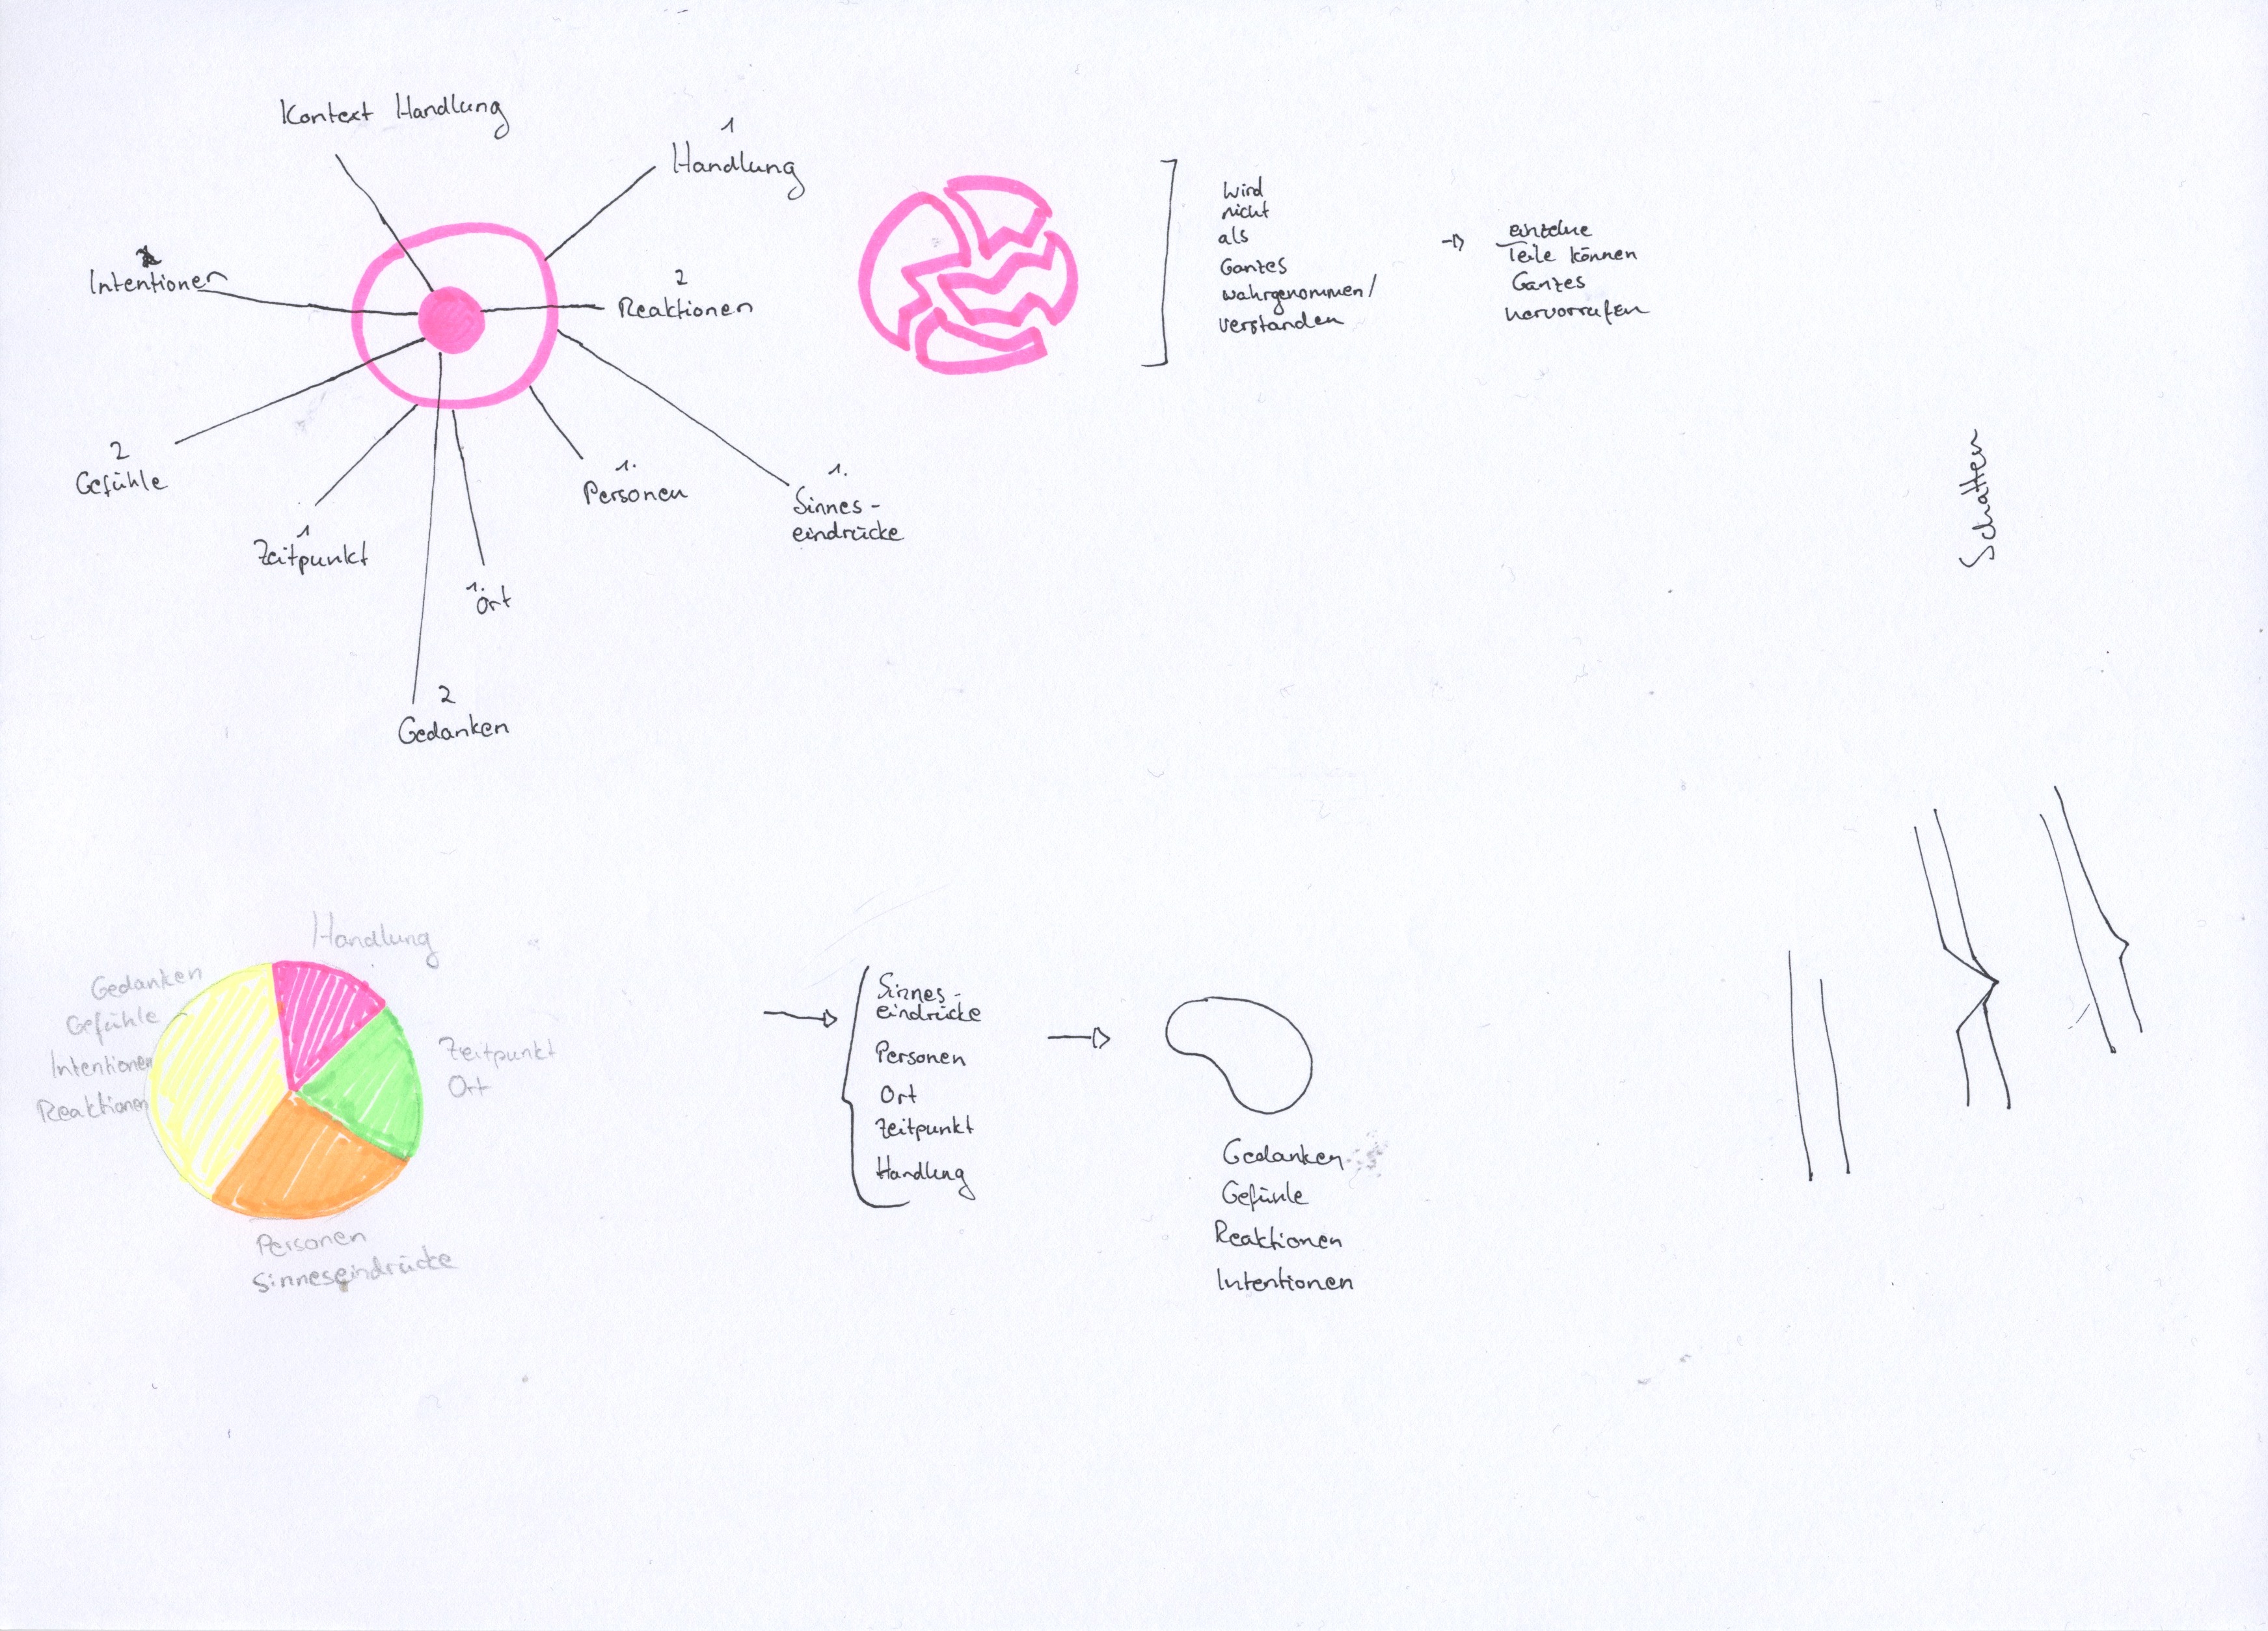 Kontext Handlung
1
Handlung
Intentionen
2
Reaktionen
2
Gefühle
1
Zeitpunkt
1.
Ort
1.
Personen
1.
Sinnes-
eindrücke
2
Gedanken
wird
nicht
als
Ganzes
wahrgenommen/
verstanden
einzelne
Teile können
Ganzes
hervorrufen
Schatten
Handlung
Gedanken
Gefühle
Intentionen
Reaktionen
Zeitpunkt
Ort
Personen
Sinneseindrücke
Sinnes-
eindrücke
Personen
Ort
Zeitpunkt
Handlung
Gedanken
Gefühle
Reaktionen
Intentionen